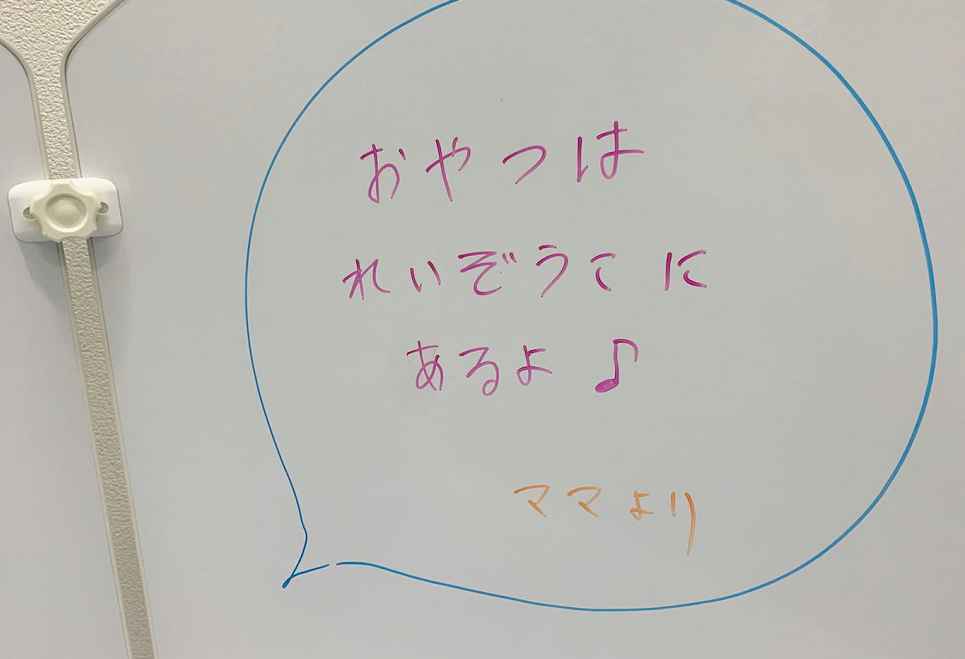 おやつは
れいぞうこに
あるよ♪
ママより